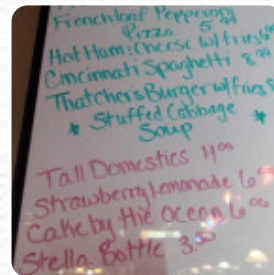 Frenchloaf Pepperoni
Pizza 5
Hot Ham & Cheese w/ fries
Cincinnati Spaghetti 8
Thatchers Burger w/ fries
* Stuffed Cabbage *
Soup
Tall Domestics 4⁰⁰
Strawberry Lemonade 6
Cake by the Ocean 6⁰⁰
Stella Bottle 3.50